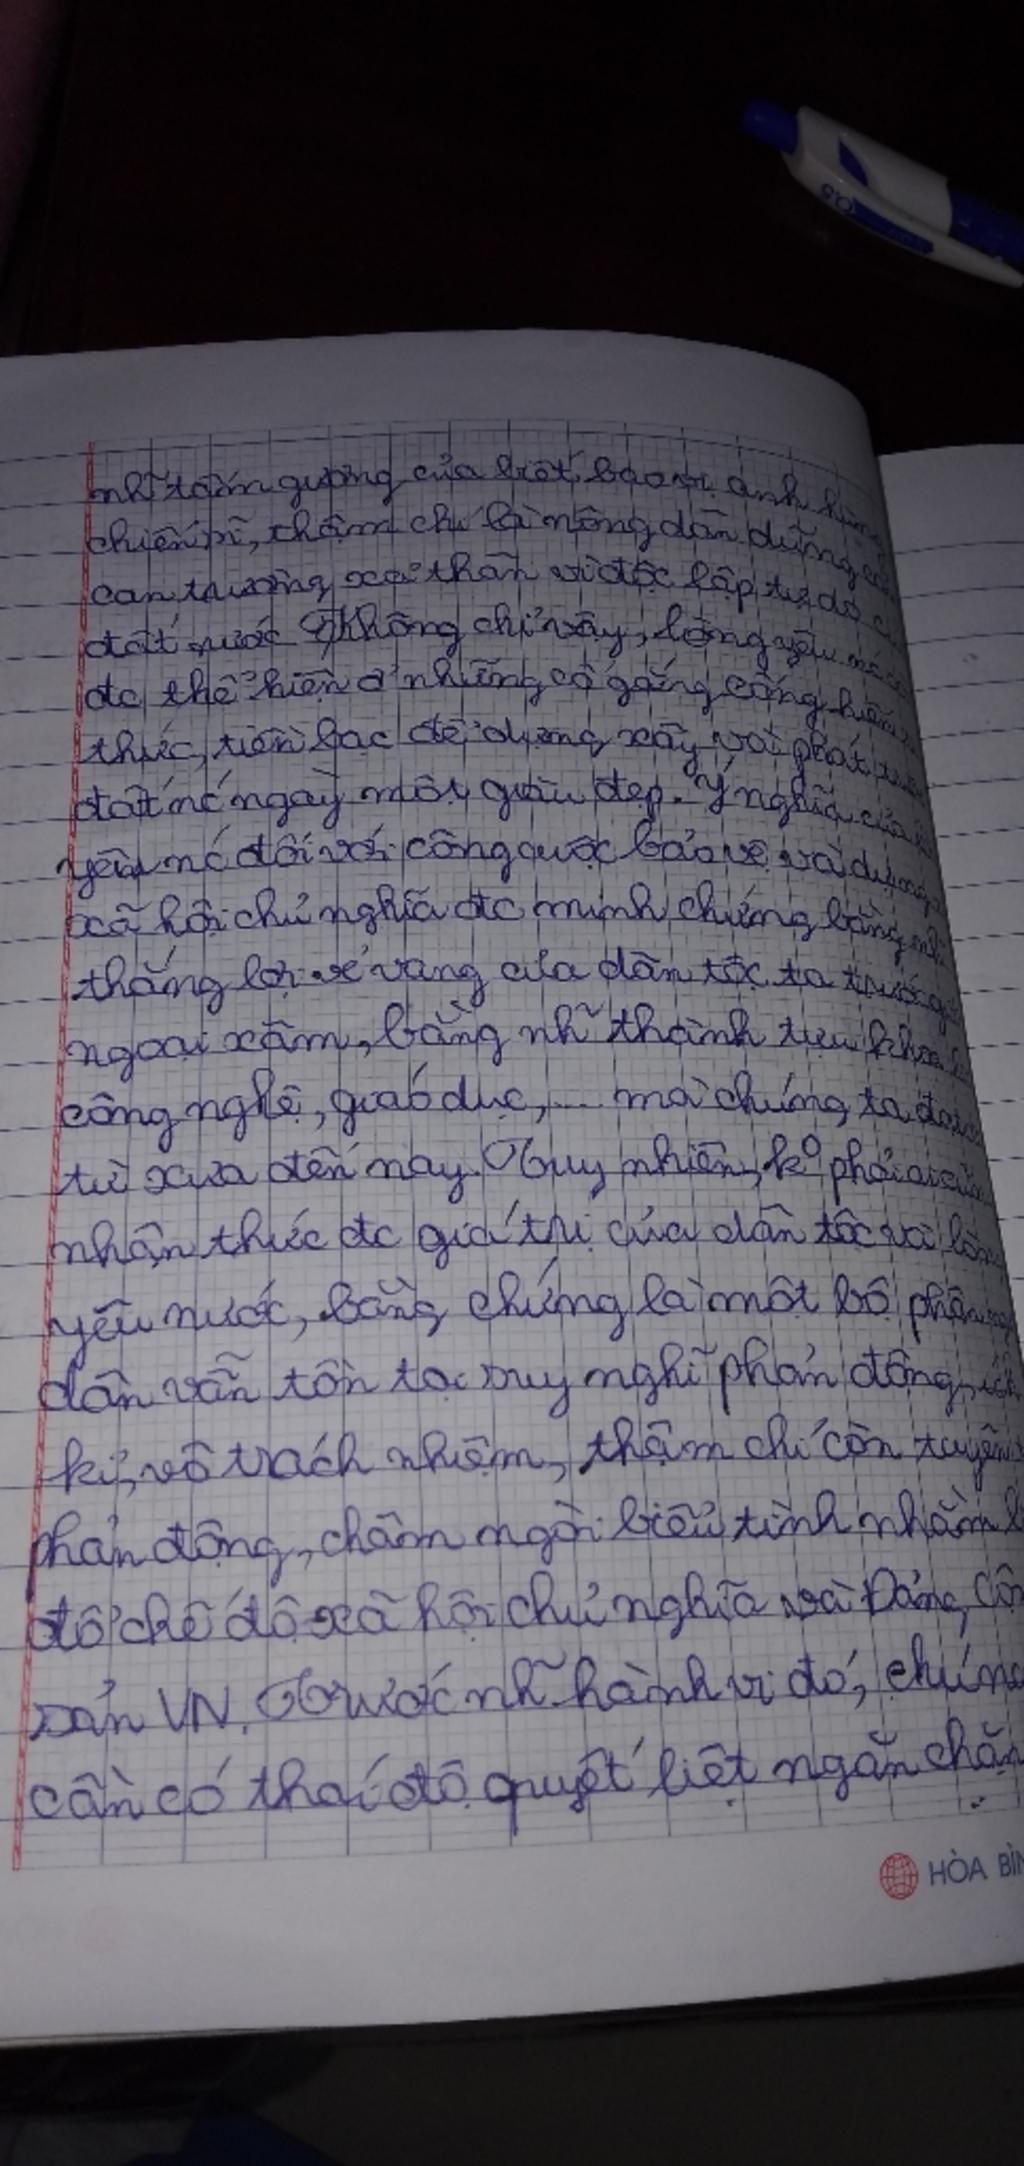 nhĩ tấm gương của biết bao vị anh hùng
chiến sĩ, thậm chí là nông dân dũng cảm
can trường xả thân vì độc lập, tự do
đất nước Không chỉ vậy, lòng yêu nước
đc thể hiện ở những cố gắng cống hiến
thức, tiền bạc để dựng xây và phát triển
đất nc ngày một giàu đẹp. Ý nghĩa của
yêu nc đối với công cuộc bảo vệ và dựng
xã hội chủ nghĩa đc minh chứng bằng nhĩ
thắng lợi vẻ vang của dân tộc ta trước
ngoại xâm, bằng nhĩ thành tựu khoa
công nghệ, giáo dục, ... mà chúng ta đạt
từ xưa đến nay. Tuy nhiên, ko phải ai cũng
nhận thức đc giá trị của dân tộc và lòng
yêu nước, bằng chứng là một bộ phận
dân vẫn tồn tại suy nghĩ phản động, ích
kỉ, vô trách nhiệm, thậm chí còn tuyên
phản động, châm ngòi biểu tình nhằm l
đổ chế độ xã hội chủ nghĩa và Đảng Cộn
sản VN. Trước nhĩ hành vi đó, chúng
cần có thái độ quyết liệt ngăn chặn
HÒA BÌN
0.5